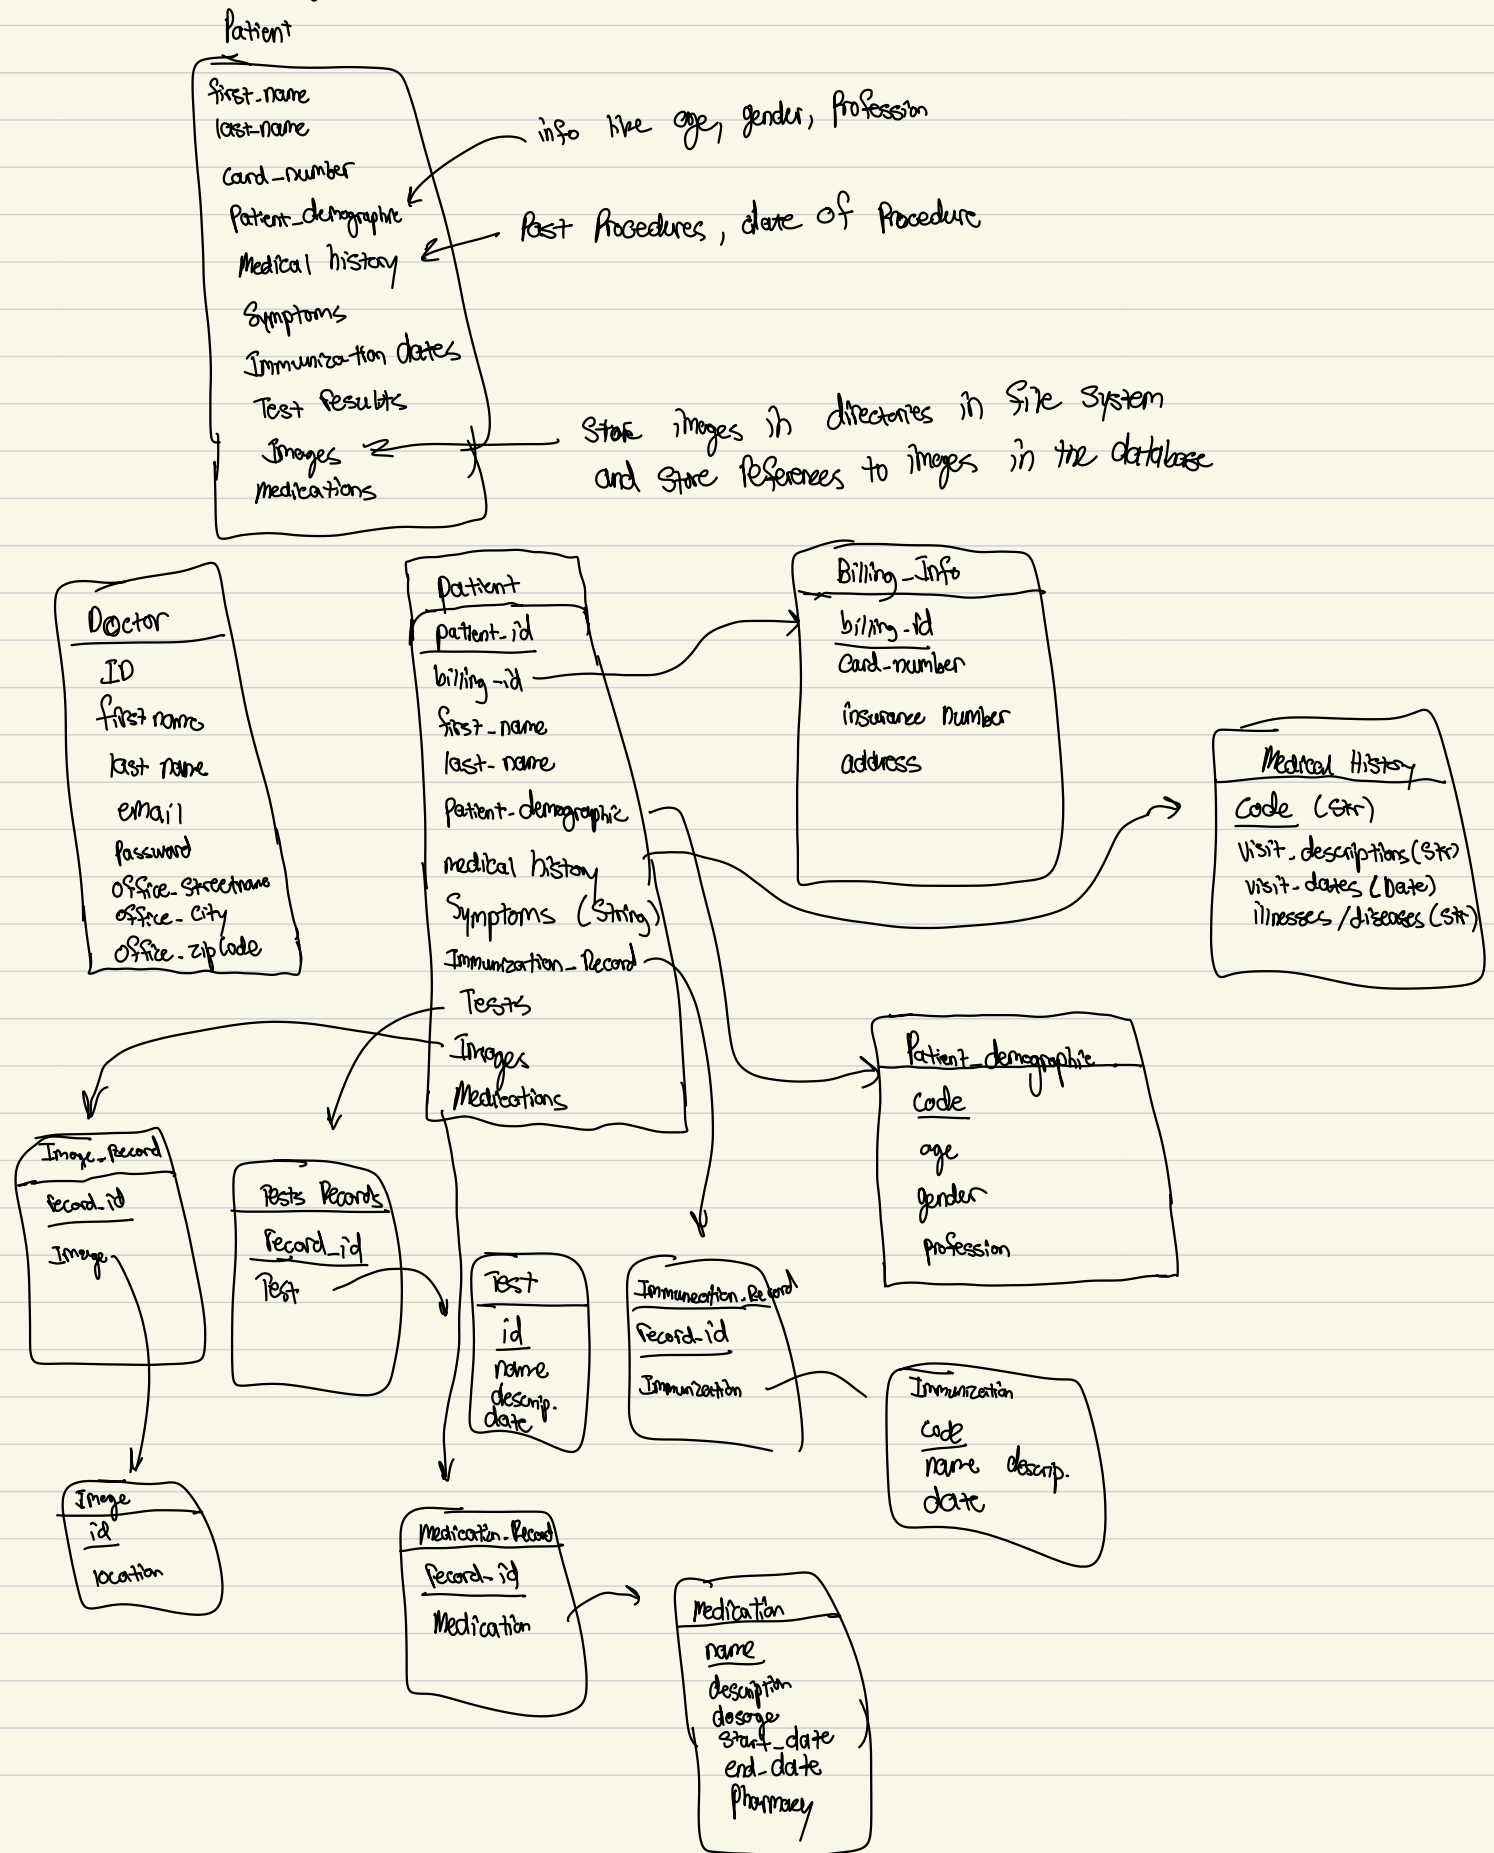 Patient
first_name
last_name
card_number
Patient_demographic
info like age, gender, Profession
Medical history
Past Procedures, date of Procedure
Symptoms
Immunization dates
Test Results
Images
Medications
Store images in directories in file system
and store References to images in the database
Doctor
ID
first name
last name
email
Password
office_streetname
office_city
office_zipcode
Patient
patient_id
billing_id
first_name
last_name
Patient_demographic
medical history
Symptoms (String)
Immunization_Record
Tests
Images
Medications
Billing_Info
billing_id
card_number
insurance number
address
Medical History
code (str)
visit_descriptions(str)
visit_dates (Date)
illnesses/diseases(str)
Patient_demographic
code
age
gender
profession
Image_Record
record_id
Image
Tests Records
record_id
Test
Test
id
name
descrip.
date
Immuneation_Record
record_id
Immunization
Immunization
code
name descrip.
date
Image
id
location
Medication_Record
record_id
Medication
Medication
name
description
dosage
start_date
end_date
Pharmacy